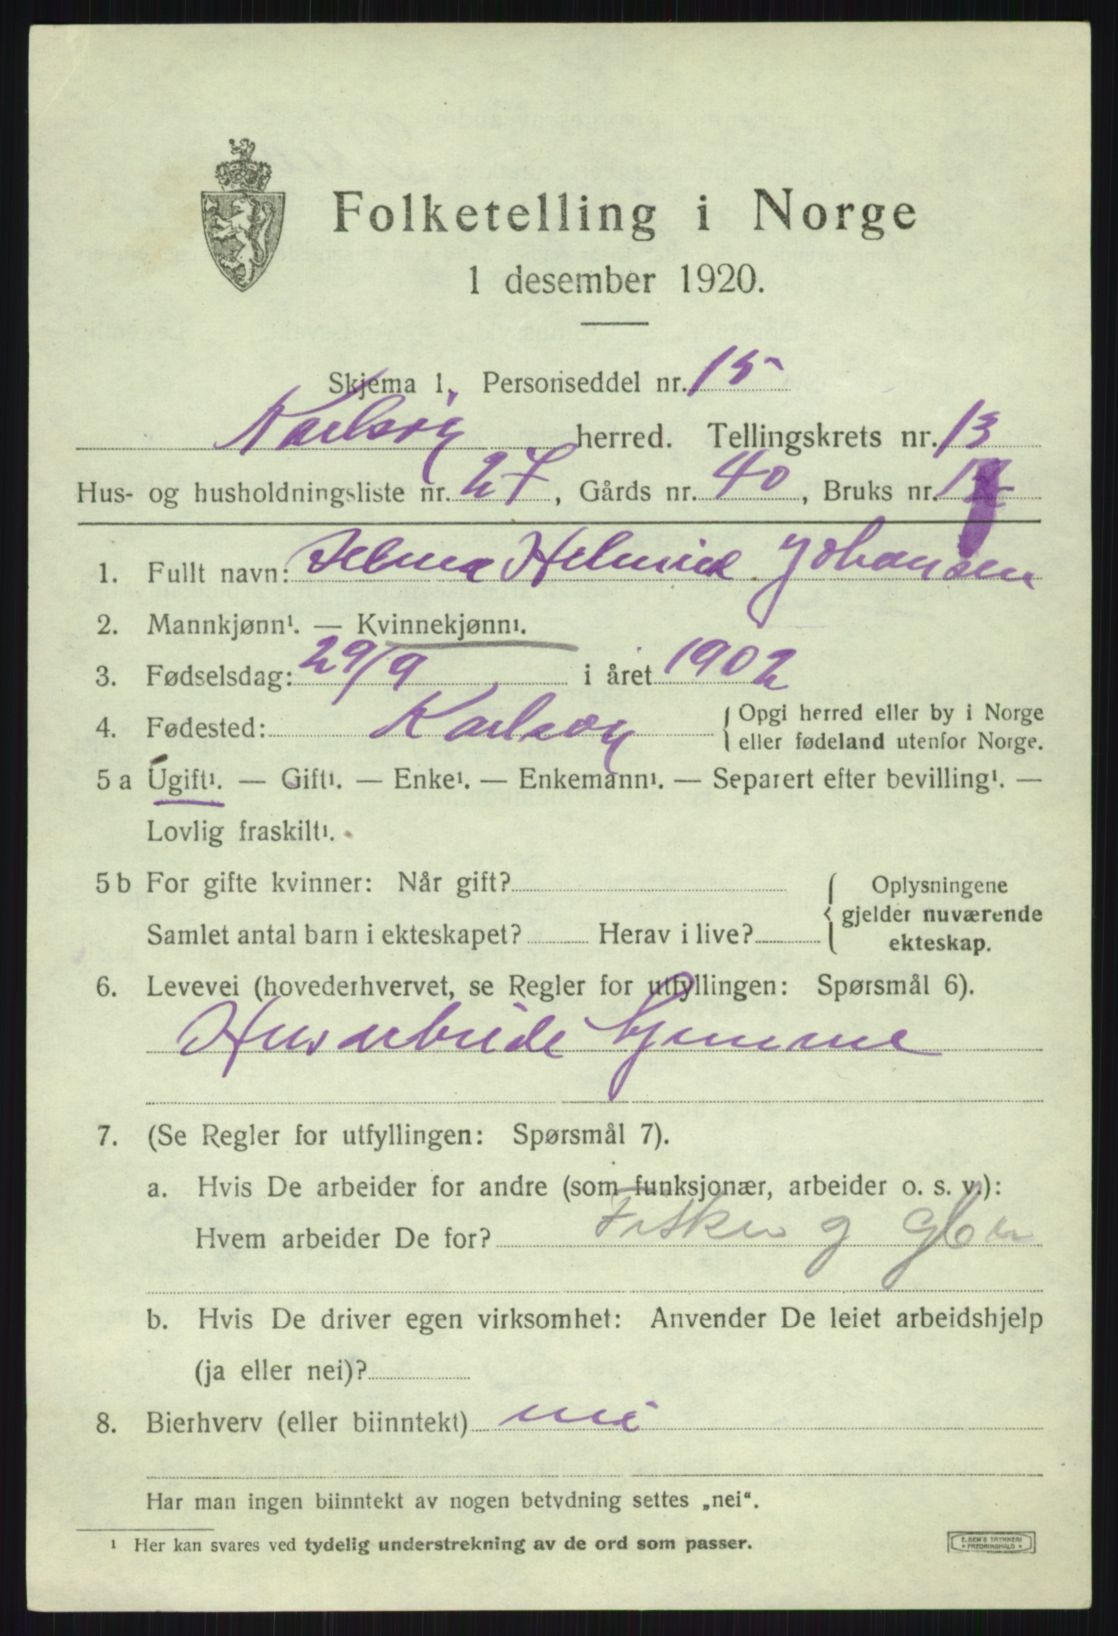 Folketelling i Norge
1 desember 1920.
Skjema 1. Personseddel nr. 15
Karlsøy herred. Tellingskrets nr. 13
Hus- og husholdningsliste nr. 27, Gårds nr. 40, Bruks nr.
1. Fullt navn: Selma Helmine Johansen
2. Mannkjønn¹. — Kvinnekjønn¹.
3. Fødselsdag: 29/9 i året 1902
4. Fødested: Karlsøy { Opgi herred eller by i Norge
eller fødeland utenfor Norge.
5 a Ugift¹. — Gift¹. — Enke¹. — Enkemann¹. — Separert efter bevilling¹. —
Lovlig fraskilt¹.
5 b For gifte kvinner: Når gift?
Samlet antal barn i ekteskapet? Herav i live?
{ Oplysningene
gjelder nuværende
ekteskap.
6. Levevei (hovederhvervet, se Regler for utfyllingen: Spørsmål 6).
Husarbeide hjemme
7. (Se Regler for utfyllingen: Spørsmål 7).
a. Hvis De arbeider for andre (som funksjonær, arbeider o. s. v.):
Hvem arbeider De for? Fisker g
b. Hvis De driver egen virksomhet: Anvender De leiet arbeidshjelp
(ja eller nei)?
8. Bierhverv (eller biinntekt) nei
Har man ingen biinntekt av nogen betydning settes „nei“.
¹ Her kan svares ved tydelig understrekning av de ord som passer.